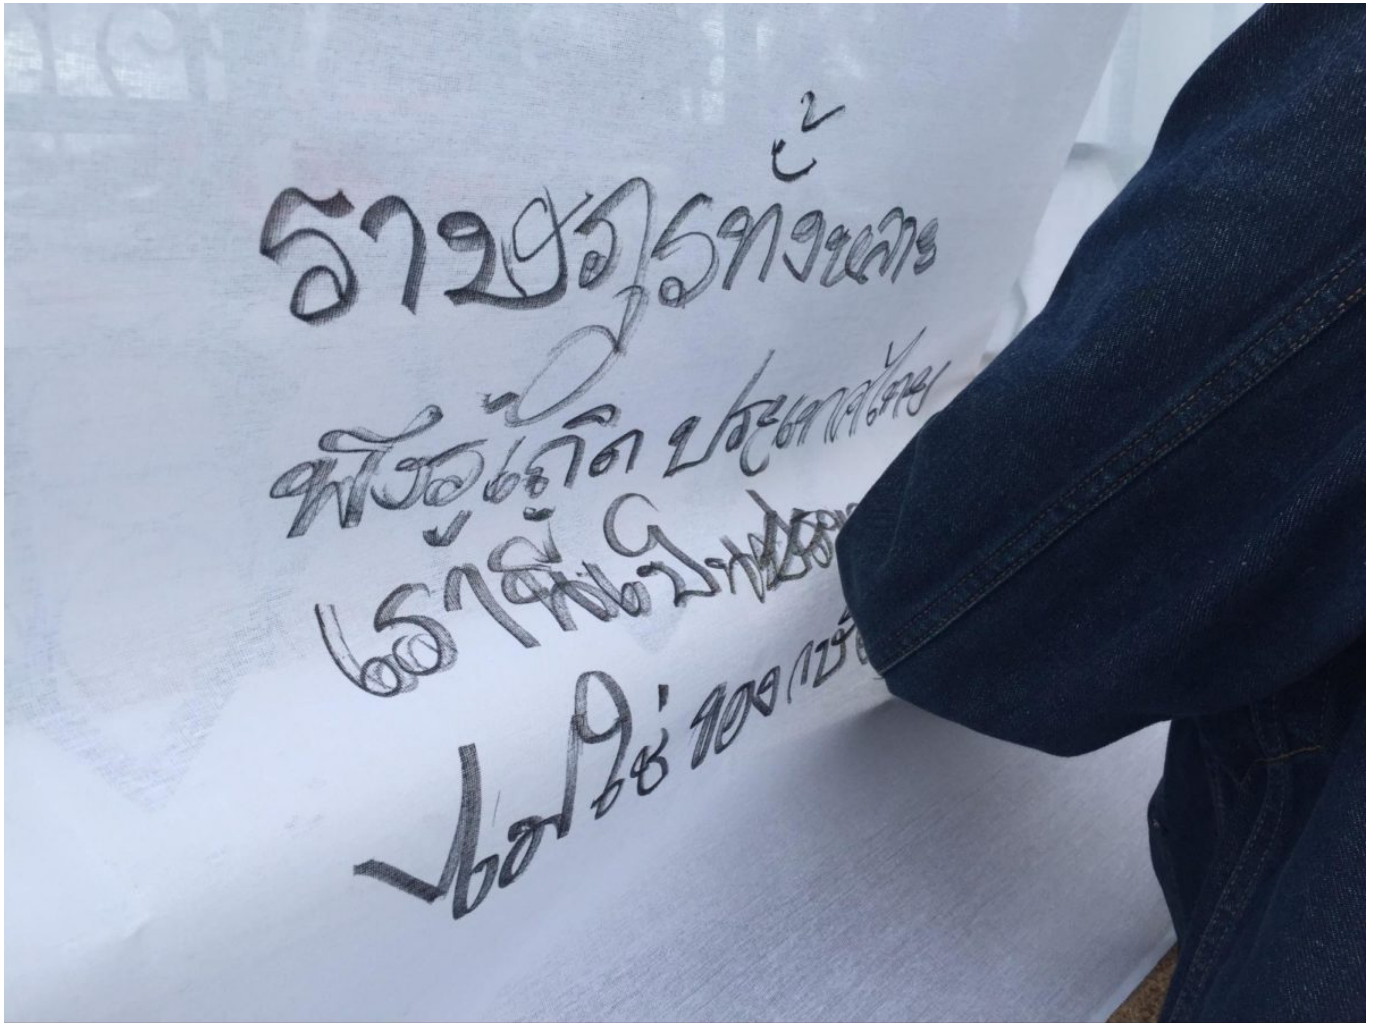 ราษฎรทั้งหลาย
พึงรู้เถิด ประเทศไทย
เรานี้เป็นของ
ไม่ใช่ของกษั